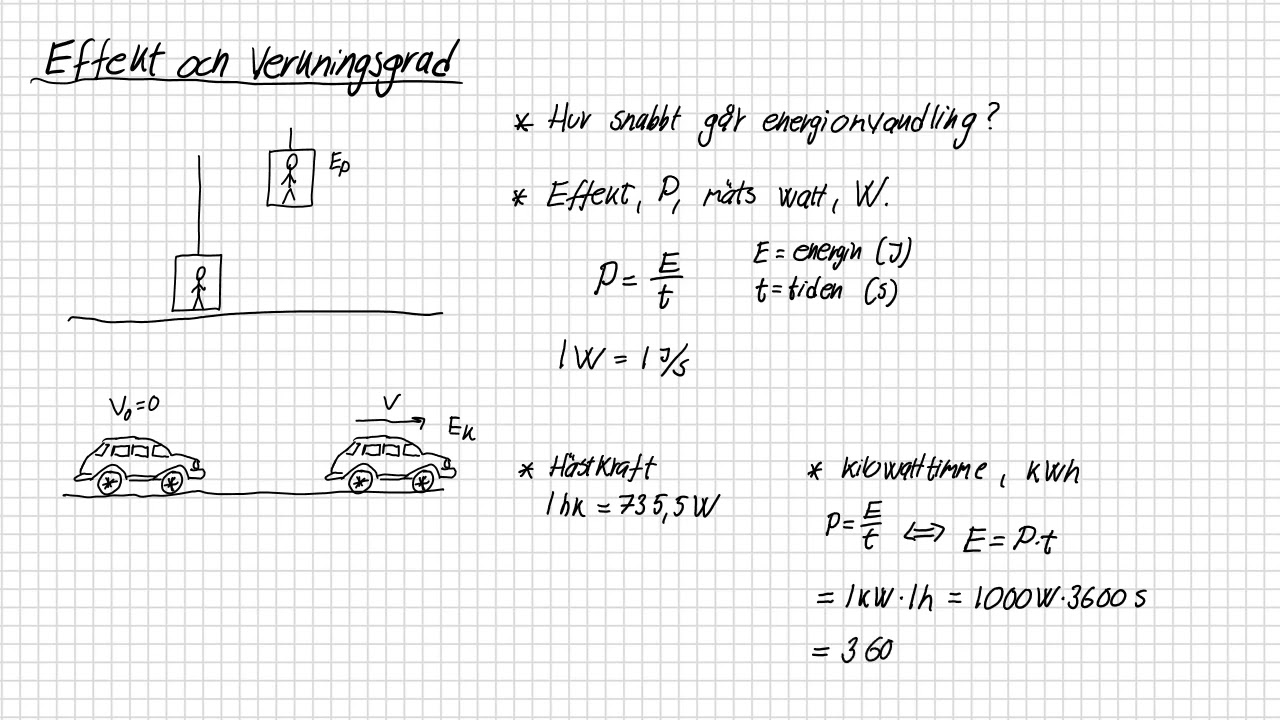 Effekt och Verkningsgrad
* Hur snabbt går energiomvandling?
Ep
* Effekt, P, mäts watt, W.
P = E/t
E = energin (J)
t = tiden (s)
1 W = 1 J/s
V₀ = 0
V
Ek
* Hästkraft
1 hk = 735,5 W
* kilowattimme, kWh
P = E/t ⇔ E = P·t
= 1 kW · 1h = 1000 W · 3600 s
= 360